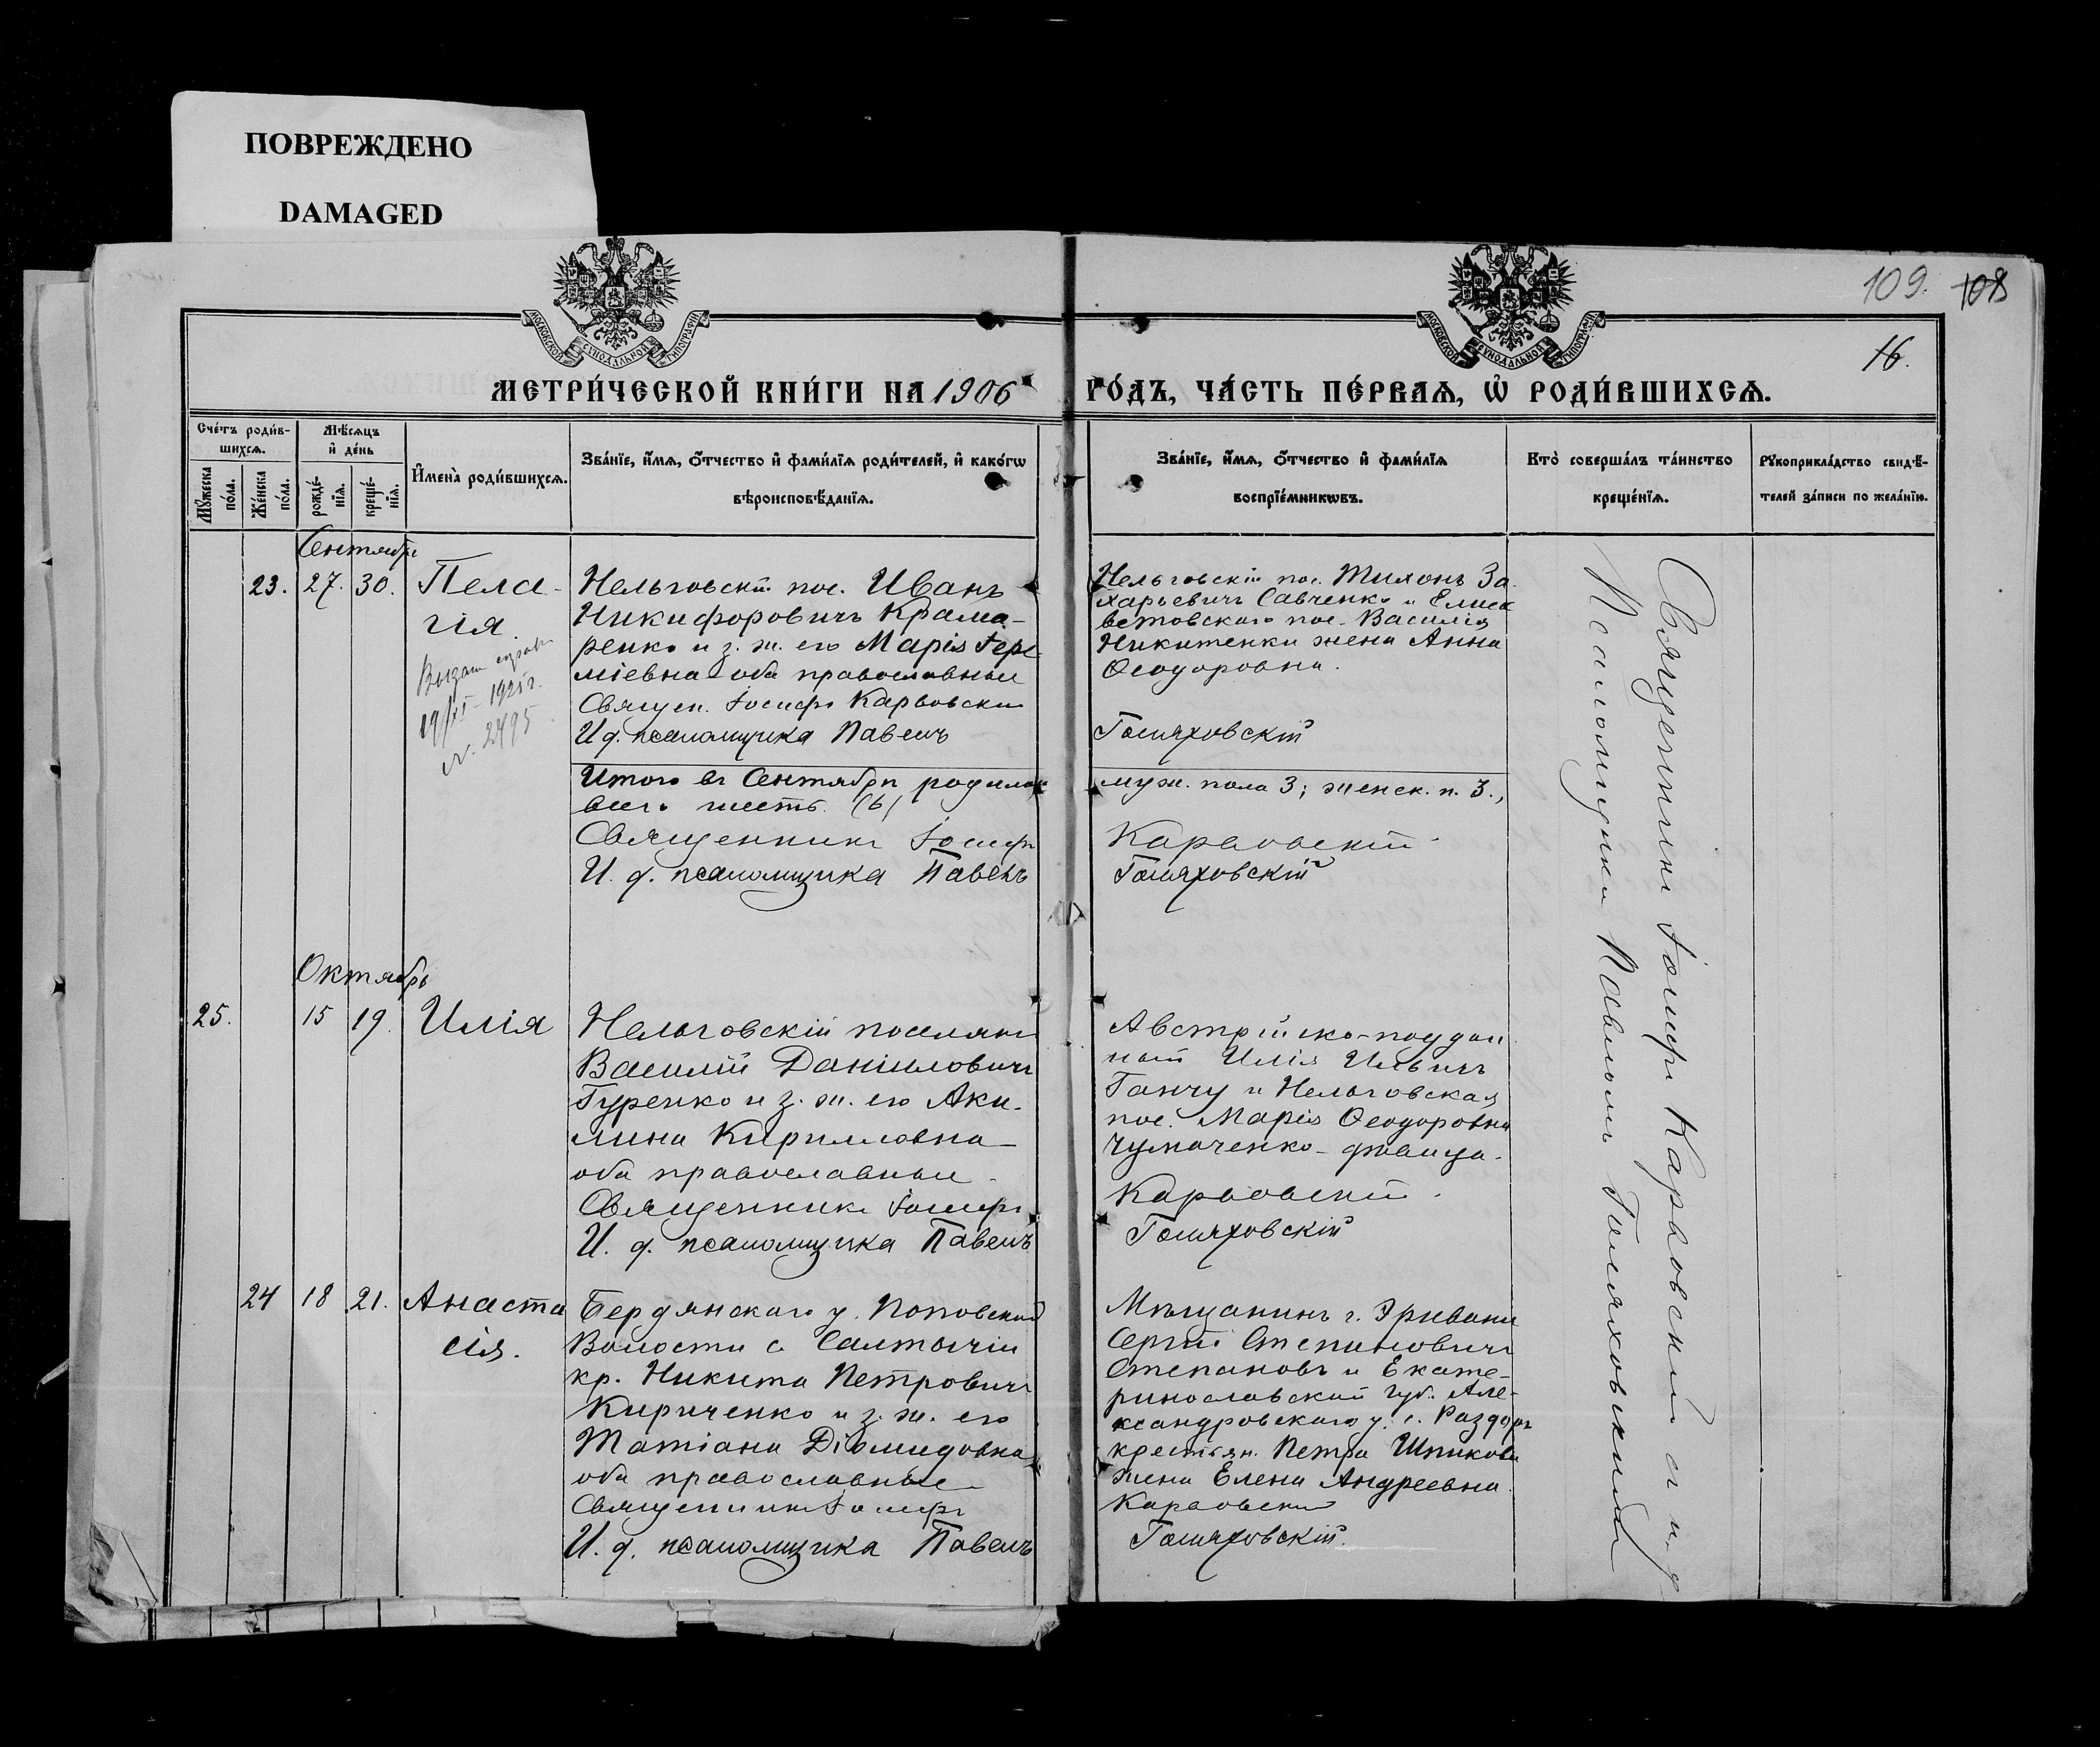 ПОВРЕЖДЕНО
DAMAGED
109. 108
16.
МОСКОВСКОЙ СУНОДАЛЬНОЙ ТИПОГРАФІИ
МОСКОВСКОЙ СУНОДАЛЬНОЙ ТИПОГРАФІИ
МЕТРИ́ЧЕСКОЙ КНИ́ГИ НА 1906 ГО́ДЪ, ЧА́СТЬ ПЕ́РВАѦ, Ѡ҆ РОДИ́ВШИХСѦ.
Сче́тъ роди́в-
шихсѧ.
Мꙋ́жеска по́ла.
Же́нска по́ла.
Мѣ́сѧцъ и҆ де́нь
рожде́-нїѧ.
креще́-нїѧ.
И҆мена̀ роди́вшихсѧ.
Зва́нїе, и҆́мѧ, ѻ҆́тчество и҆ фами́лїѧ роди́телей, и҆ како́гѡ
вѣроисповѣ́данїѧ.
Зва́нїе, и҆́мѧ, ѻ҆́тчество и҆ фами́лїѧ
воспрїе́мникѡвъ.
Кто̀ соверша́лъ та́инство
креще́нїѧ.
Рꙋкоприкла́дство свидѣ́-
телей за́писи по жела́нїю.
Сентябрь
23. 27. 30. Пела-
гія.
Выдан справк
19/IX-1925 г.
№ 2495
Нельговскій пос. Иванъ
Никифоровичъ Крама-
ренко и з. ж. его Марія Іере
міевна оба православные
Священ. Іосифъ Карвовскій
И д. псаломщика Павелъ
Нельговскій пос. Тихонъ За-
харьевичъ Савченко и Елиса
ветовскаго пос. Василія
Никитенки жена Анна
Ѳеодоровна.
Голяховскій
Итого въ Сентябрѣ родилось
всего шесть. (6)
муж. пола 3; женск. п. 3.,
Священникъ Іосифъ
Карвовскій
И. д. псаломщика Павелъ
Голяховскій
Октябрь
25. 15 19. Илія
Нельговскій поселянинъ
Василій Даниловичъ
Гуренко и з. ж. его Аки-
лина Кирилловна
оба православные
Священникъ Іосифъ
И. д. псаломщика Павелъ
Австрійско-поддан
ный Илія Ильичъ
Ганчу и Нельговская
пос. Марія Ѳеодоровна
Чумаченко - дѣвица.
Карвовскій
Голяховскій
24 18 21. Анаста
сія.
Бердянскаго у. Поповской
Волости с. Салтычіи
кр. Никита Петровичъ
Кириченко и з. ж. его
Татіана Діомидовна
оба православные
Священникъ Іосифъ
И. д. псаломщика Павелъ
Мѣщанинъ г. Эривани
Сергій Степановичъ
Степановъ и Екате-
ринославской губ. Але-
ксандровскаго у. с. Раздоръ
крестьян. Петра Шпикова
жена Елена Андреевна
Карвовскій
Голяховскій.
Священникъ Іосифъ Карвовскій съ и. д.
Псаломщика Павломъ Голяховскимъ